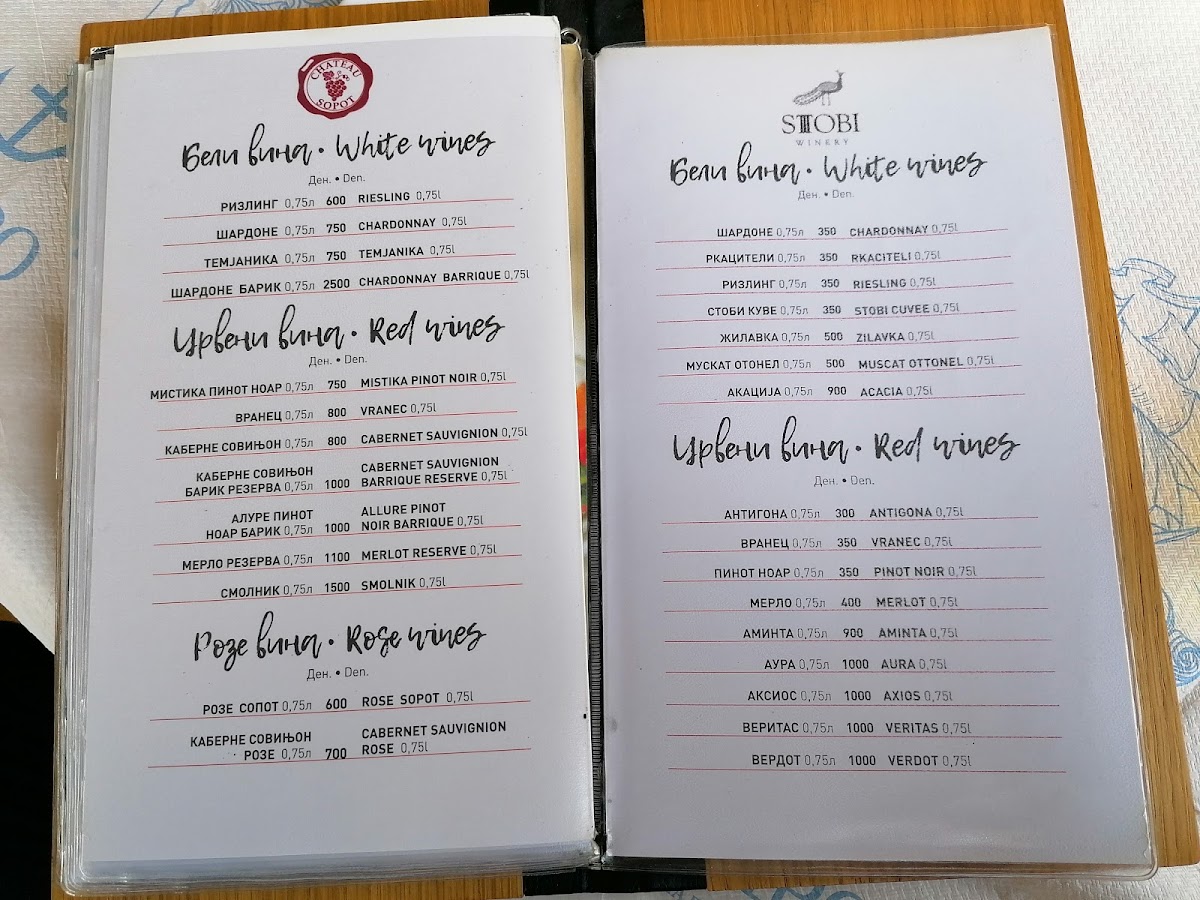 CHATEAU
SOPOT
Бели вина • White wines
Ден. • Den.
РИЗЛИНГ 0,75л 600 RIESLING 0,75l
ШАРДОНЕ 0,75л 750 CHARDONNAY 0,75l
ТЕМЈАНИКА 0,75л 750 TEMJANIKA 0,75l
ШАРДОНЕ БАРИК 0,75л 2500 CHARDONNAY BARRIQUE 0,75l
Црвени вина • Red wines
Ден. • Den.
МИСТИКА ПИНОТ НОАР 0,75л 750 MISTIKA PINOT NOIR 0,75l
ВРАНЕЦ 0,75л 800 VRANEC 0,75l
КАБЕРНЕ СОВИЊОН 0,75л 800 CABERNET SAUVIGNION 0,75l
КАБЕРНЕ СОВИЊОН CABERNET SAUVIGNION
БАРИК РЕЗЕРВА 0,75л 1000 BARRIQUE RESERVE 0,75l
АЛУРЕ ПИНОТ ALLURE PINOT
НОАР БАРИК 0,75л 1000 NOIR BARRIQUE 0,75l
МЕРЛО РЕЗЕРВА 0,75л 1100 MERLOT RESERVE 0,75l
СМОЛНИК 0,75л 1500 SMOLNIK 0,75l
Розе вина • Rose wines
Ден. • Den.
РОЗЕ СОПОТ 0,75л 600 ROSE SOPOT 0,75l
КАБЕРНЕ СОВИЊОН CABERNET SAUVIGNION
РОЗЕ 0,75л 700 ROSE 0,75l
STOBI
WINERY
Бели вина • White wines
Ден. • Den.
ШАРДОНЕ 0,75л 350 CHARDONNAY 0,75l
РКАЦИТЕЛИ 0,75л 350 RKACITELI 0,75l
РИЗЛИНГ 0,75л 350 RIESLING 0,75l
СТОБИ КУВЕ 0,75л 350 STOBI CUVEE 0,75l
ЖИЛАВКА 0,75л 500 ZILAVKA 0,75l
МУСКАТ ОТОНЕЛ 0,75л 500 MUSCAT OTTONEL 0,75l
АКАЦИЈА 0,75л 900 ACACIA 0,75l
Црвени вина • Red wines
Ден. • Den.
АНТИГОНА 0,75л 300 ANTIGONA 0,75l
ВРАНЕЦ 0,75л 350 VRANEC 0,75l
ПИНОТ НОАР 0,75л 350 PINOT NOIR 0,75l
МЕРЛО 0,75л 400 MERLOT 0,75l
АМИНТА 0,75л 900 AMINTA 0,75l
АУРА 0,75л 1000 AURA 0,75l
АКСИОС 0,75л 1000 AXIOS 0,75l
ВЕРИТАС 0,75л 1000 VERITAS 0,75l
ВЕРДОТ 0,75л 1000 VERDOT 0,75l